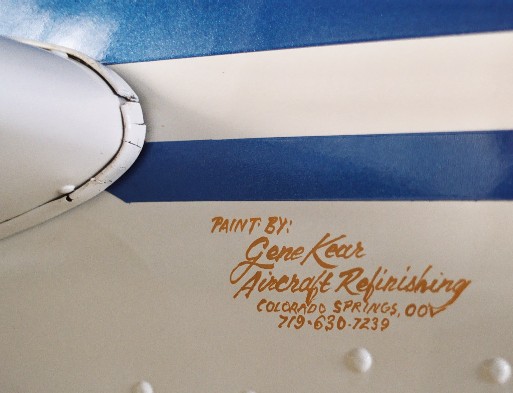 PAINT BY:
Gene Kear
Aircraft Refinishing
COLORADO SPRINGS,
719-630-7239